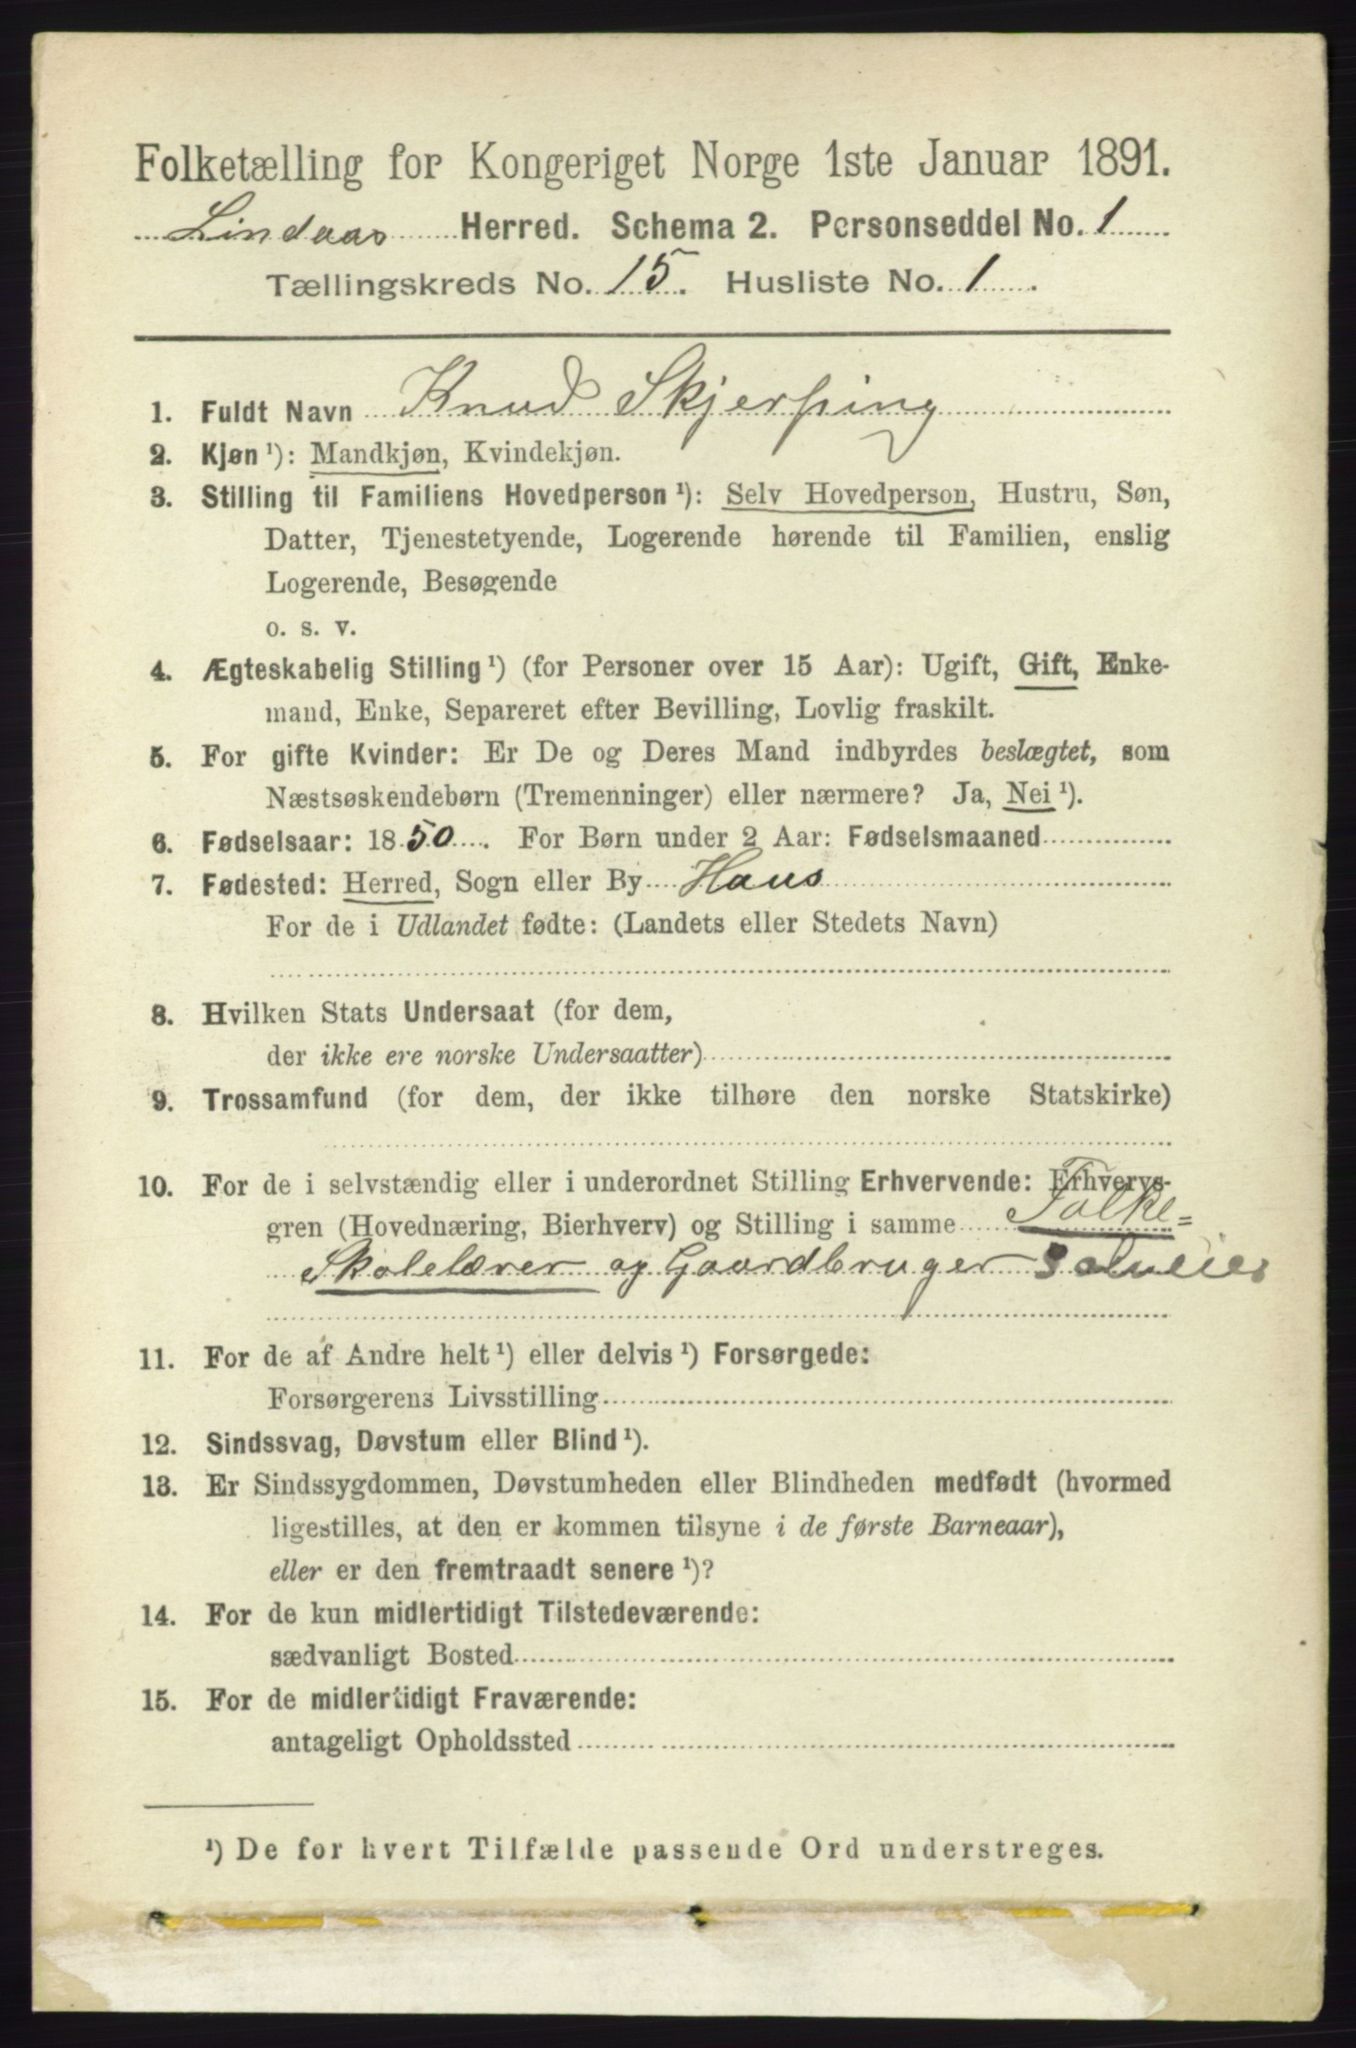 Folketælling for Kongeriget Norge 1ste Januar 1891.
Lindaas Herred. Schema 2. Personseddel No. 1
Tællingskreds No. 15. Husliste No. 1.
1. Fuldt Navn Knud Skjerping
2. Kjøn ¹): Mandkjøn, Kvindekjøn.
3. Stilling til Familiens Hovedperson ¹): Selv Hovedperson, Hustru, Søn,
Datter, Tjenestetyende, Logerende hørende til Familien, enslig
Logerende, Besøgende
o. s. v.
4. Ægteskabelig Stilling ¹) (for Personer over 15 Aar): Ugift, Gift, Enke-
mand, Enke, Separeret efter Bevilling, Lovlig fraskilt.
5. For gifte Kvinder: Er De og Deres Mand indbyrdes beslægtet, som
Næstsøskendebørn (Tremenninger) eller nærmere? Ja, Nei ¹).
6. Fødselsaar: 1850. For Børn under 2 Aar: Fødselsmaaned
7. Fødested: Herred, Sogn eller By Haus
For de i Udlandet fødte: (Landets eller Stedets Navn)
8. Hvilken Stats Undersaat (for dem,
der ikke ere norske Undersaatter)
9. Trossamfund (for dem, der ikke tilhøre den norske Statskirke)
10. For de i selvstændig eller i underordnet Stilling Erhvervende: Erhvervs-
gren (Hovednæring, Bierhverv) og Stilling i samme Folke=
Skolelærer og Gaardbruger Selveier
11. For de af Andre helt ¹) eller delvis ¹) Forsørgede:
Forsørgerens Livsstilling
12. Sindssvag, Døvstum eller Blind ¹).
13. Er Sindssygdommen, Døvstumheden eller Blindheden medfødt (hvormed
ligestilles, at den er kommen tilsyne i de første Barneaar),
eller er den fremtraadt senere ¹)?
14. For de kun midlertidigt Tilstedeværende:
sædvanligt Bosted
15. For de midlertidigt Fraværende:
antageligt Opholdssted
¹) De for hvert Tilfælde passende Ord understreges.